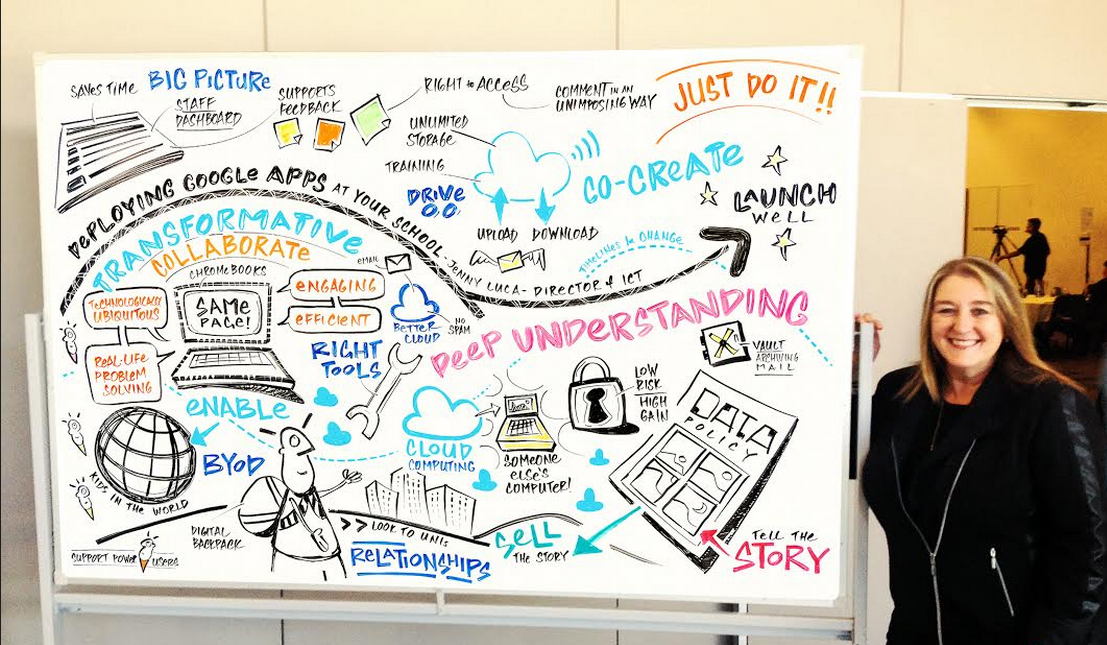 SAVES TIME
BIG PICTURE
STAFF
DASHBOARD
SUPPORTS
FEEDBACK
RIGHT to ACCESS
COMMENT IN AN
UNIMPOSING WAY
JUST DO IT!!
UNLIMITED
STORAGE
TRAINING
DRIVE
CO-CREATE
LAUNCH
WELL
UPLOAD DOWNLOAD
DEPLOYING GOOGLE APPS AT YOUR SCHOOL - JENNY LUCA - DIRECTOR of ICT
TIMELINES for CHANGE
TRANSFORMATIVE
COLLABORATE
CHROMEBOOKS
TECHNOLOGICALLY
UBIQUITOUS
SAME
PAGE!
ENGAGING
EFFICIENT
EMAIL
BETTER
CLOUD
NO
SPAM
REAL-LIFE
PROBLEM
SOLVING
RIGHT
TOOLS
DEEP UNDERSTANDING
VAULT
ARCHIVING
MAIL
LOW
RISK
HIGH
GAIN
DATA
POLICY
ENABLE
BYOD
CLOUD
COMPUTING
SOMEONE
ELSE'S
COMPUTER!
KIDS IN THE WORLD
DIGITAL
BACKPACK
>> LOOK TO UNIS
RELATIONSHIPS
SELL
THE STORY
TELL THE
STORY
SUPPORT POWER USERS